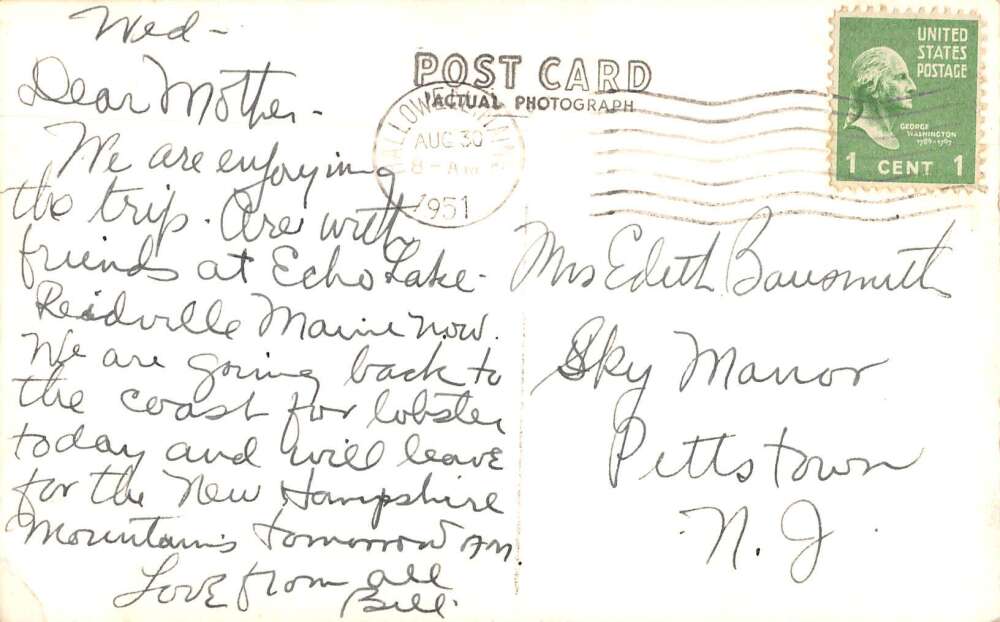 Wed-
Dear Mother-
We are enjoying
the trip. Are with
friends at Echo Lake-
Reidville Maine now.
We are going back to
the coast for lobster
today and will leave
for the New Hampshire
Mountains tomorrow AM
Love from all
Bill.
POST CARD
ACTUAL PHOTOGRAPH
HALLOWELL, MAINE
AUG 30
8-AM
1951
UNITED
STATES
POSTAGE
GEORGE
WASHINGTON
1789-1797
1 CENT 1
Mrs Edith Bausmith
Sky Manor
Pittstown
N.J.